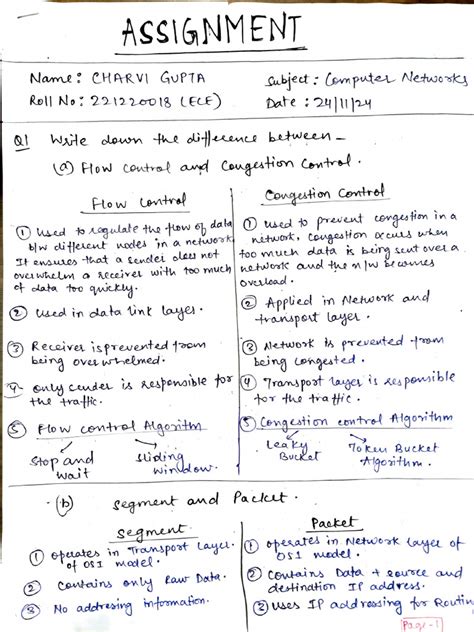 ASSIGNMENT
Name: CHARVI GUPTA
Subject: Computer Networks
Roll No: 221220018 (ECE)
Date: 24/11/24
Q1 Write down the difference between-
(a) Flow Control and Congestion Control.
Flow Control
① Used to regulate the flow of data
b/w different nodes in a network.
It ensures that a sender does not
overwhelm a receiver with too much
of data too quickly.
② Used in data link layer.
③ Receiver is prevented from
being overwhelmed.
4. only sender is responsible for
the traffic.
⑤ Flow control Algorithm
Stop and
wait
Sliding
window.
Congestion Control
① Used to prevent congestion in a
network, congestion occurs when
too much data is being sent over a
network and the n/w becomes
overload.
② Applied in Network and
transport layer.
③ Network is prevented from
being congested.
④ Transport layer is responsible
for the traffic.
⑤ Congestion control Algorithm
Leaky
Bucket
Token Bucket
Algorithm.
(b) Segment and Packet.
Segment
① operates in Transport Layer.
of OSI model.
② Contains only Raw Data.
③ No addresing information.
Packet
① operates in Network Layer of
OSI model.
② Contains Data + source and
destination IP address.
③ Uses IP addressing for Routin
Page-1